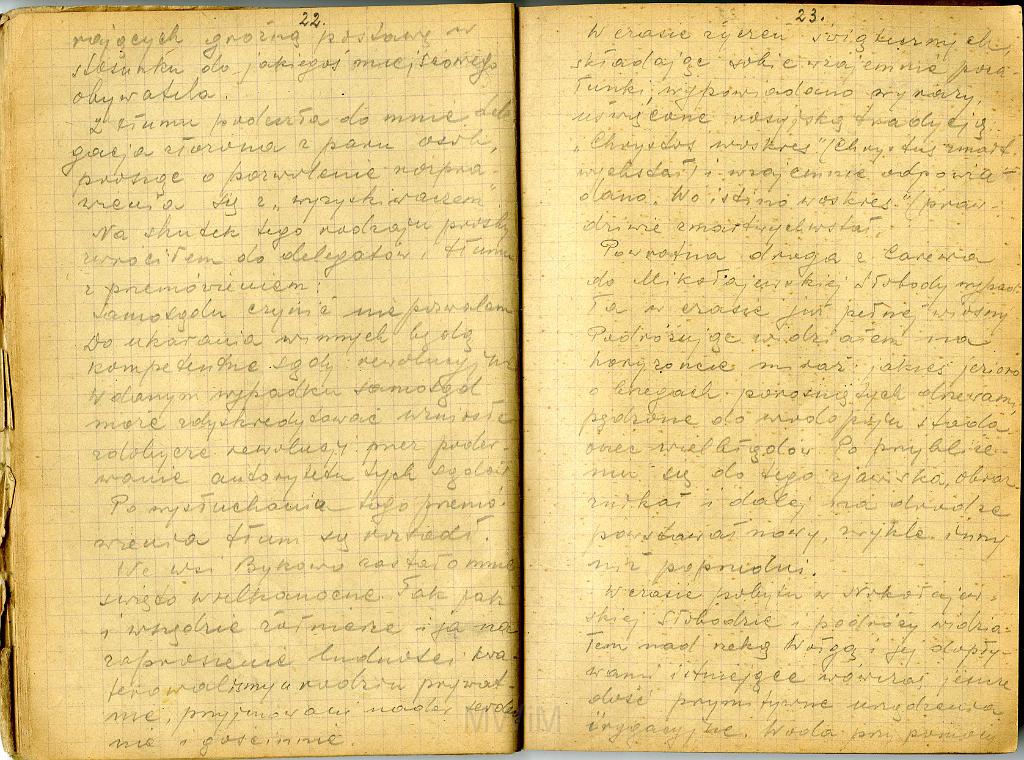 22.
rających groźną postawę w
stosunku do jakiegoś miejscowego
obywatela.
Z tłumu podeszła do mnie dele
gacja złożona z paru osób,
prosząc o pozwolenie rozpra-
wienia się z „wyzyskiwaczem"
Na skutek tego rodzaju prośby
zwróciłem do delegatów i tłumu
z przemówieniem:
Samosądu czynić nie pozwalam
Do ukarania winnych będą
kompetentne sądy rewolucyjne
w danym wypadku samosąd
może zdyskredytować wzniosłe
zdobycze rewolucji przez poder
wanie autorytetu tych sądów
Po wysłuchaniu tego przemó-
wienia tłum się rozszedł.
We wsi Bykowo zastało mnie
święto wielkanocne. Tak jak
i wszędzie żołnierze i ja na
zaproszenie ludności kwa-
terowaliśmy u rodzin prywat-
nie, przyjmowani nader serdecz
nie i gościnnie.
23.
W czasie życzeń świątecznych,
składając sobie wzajemnie poca-
łunki, wypowiadano wyrazy,
uświęcone rosyjską tradycją
„Chrystos woskres" (Chrystus zmart-
wychstał) i wzajemnie odpowia-
dano „Wo istino woskres" (praw-
dziwie zmartwychwstał.
Powrotna droga z Carewa
do Mikołajewskiej Słobody wypad-
ła w czasie już pełnej wiosny
Podróżując widziałem na
horyzoncie miraż jakieś jezioro
o brzegach porośniętych drzewami,
pędzone do wodopoju stada
owiec wielbłądów. Po przybliże-
niu się do tego zjawiska, obraz
znikał i dalej na drodze
powstawał nowy, zwykle inny
niż poprzedni.
W czasie pobytu w Mikołajew-
skiej Słobodzie i podróży widzia-
łem nad rzeką Wołgą i jej dopły-
wami istniejące wówczas jeszcze
dość prymitywne urządzenia
irygacyjne. Woda przy pomocy
MWiM